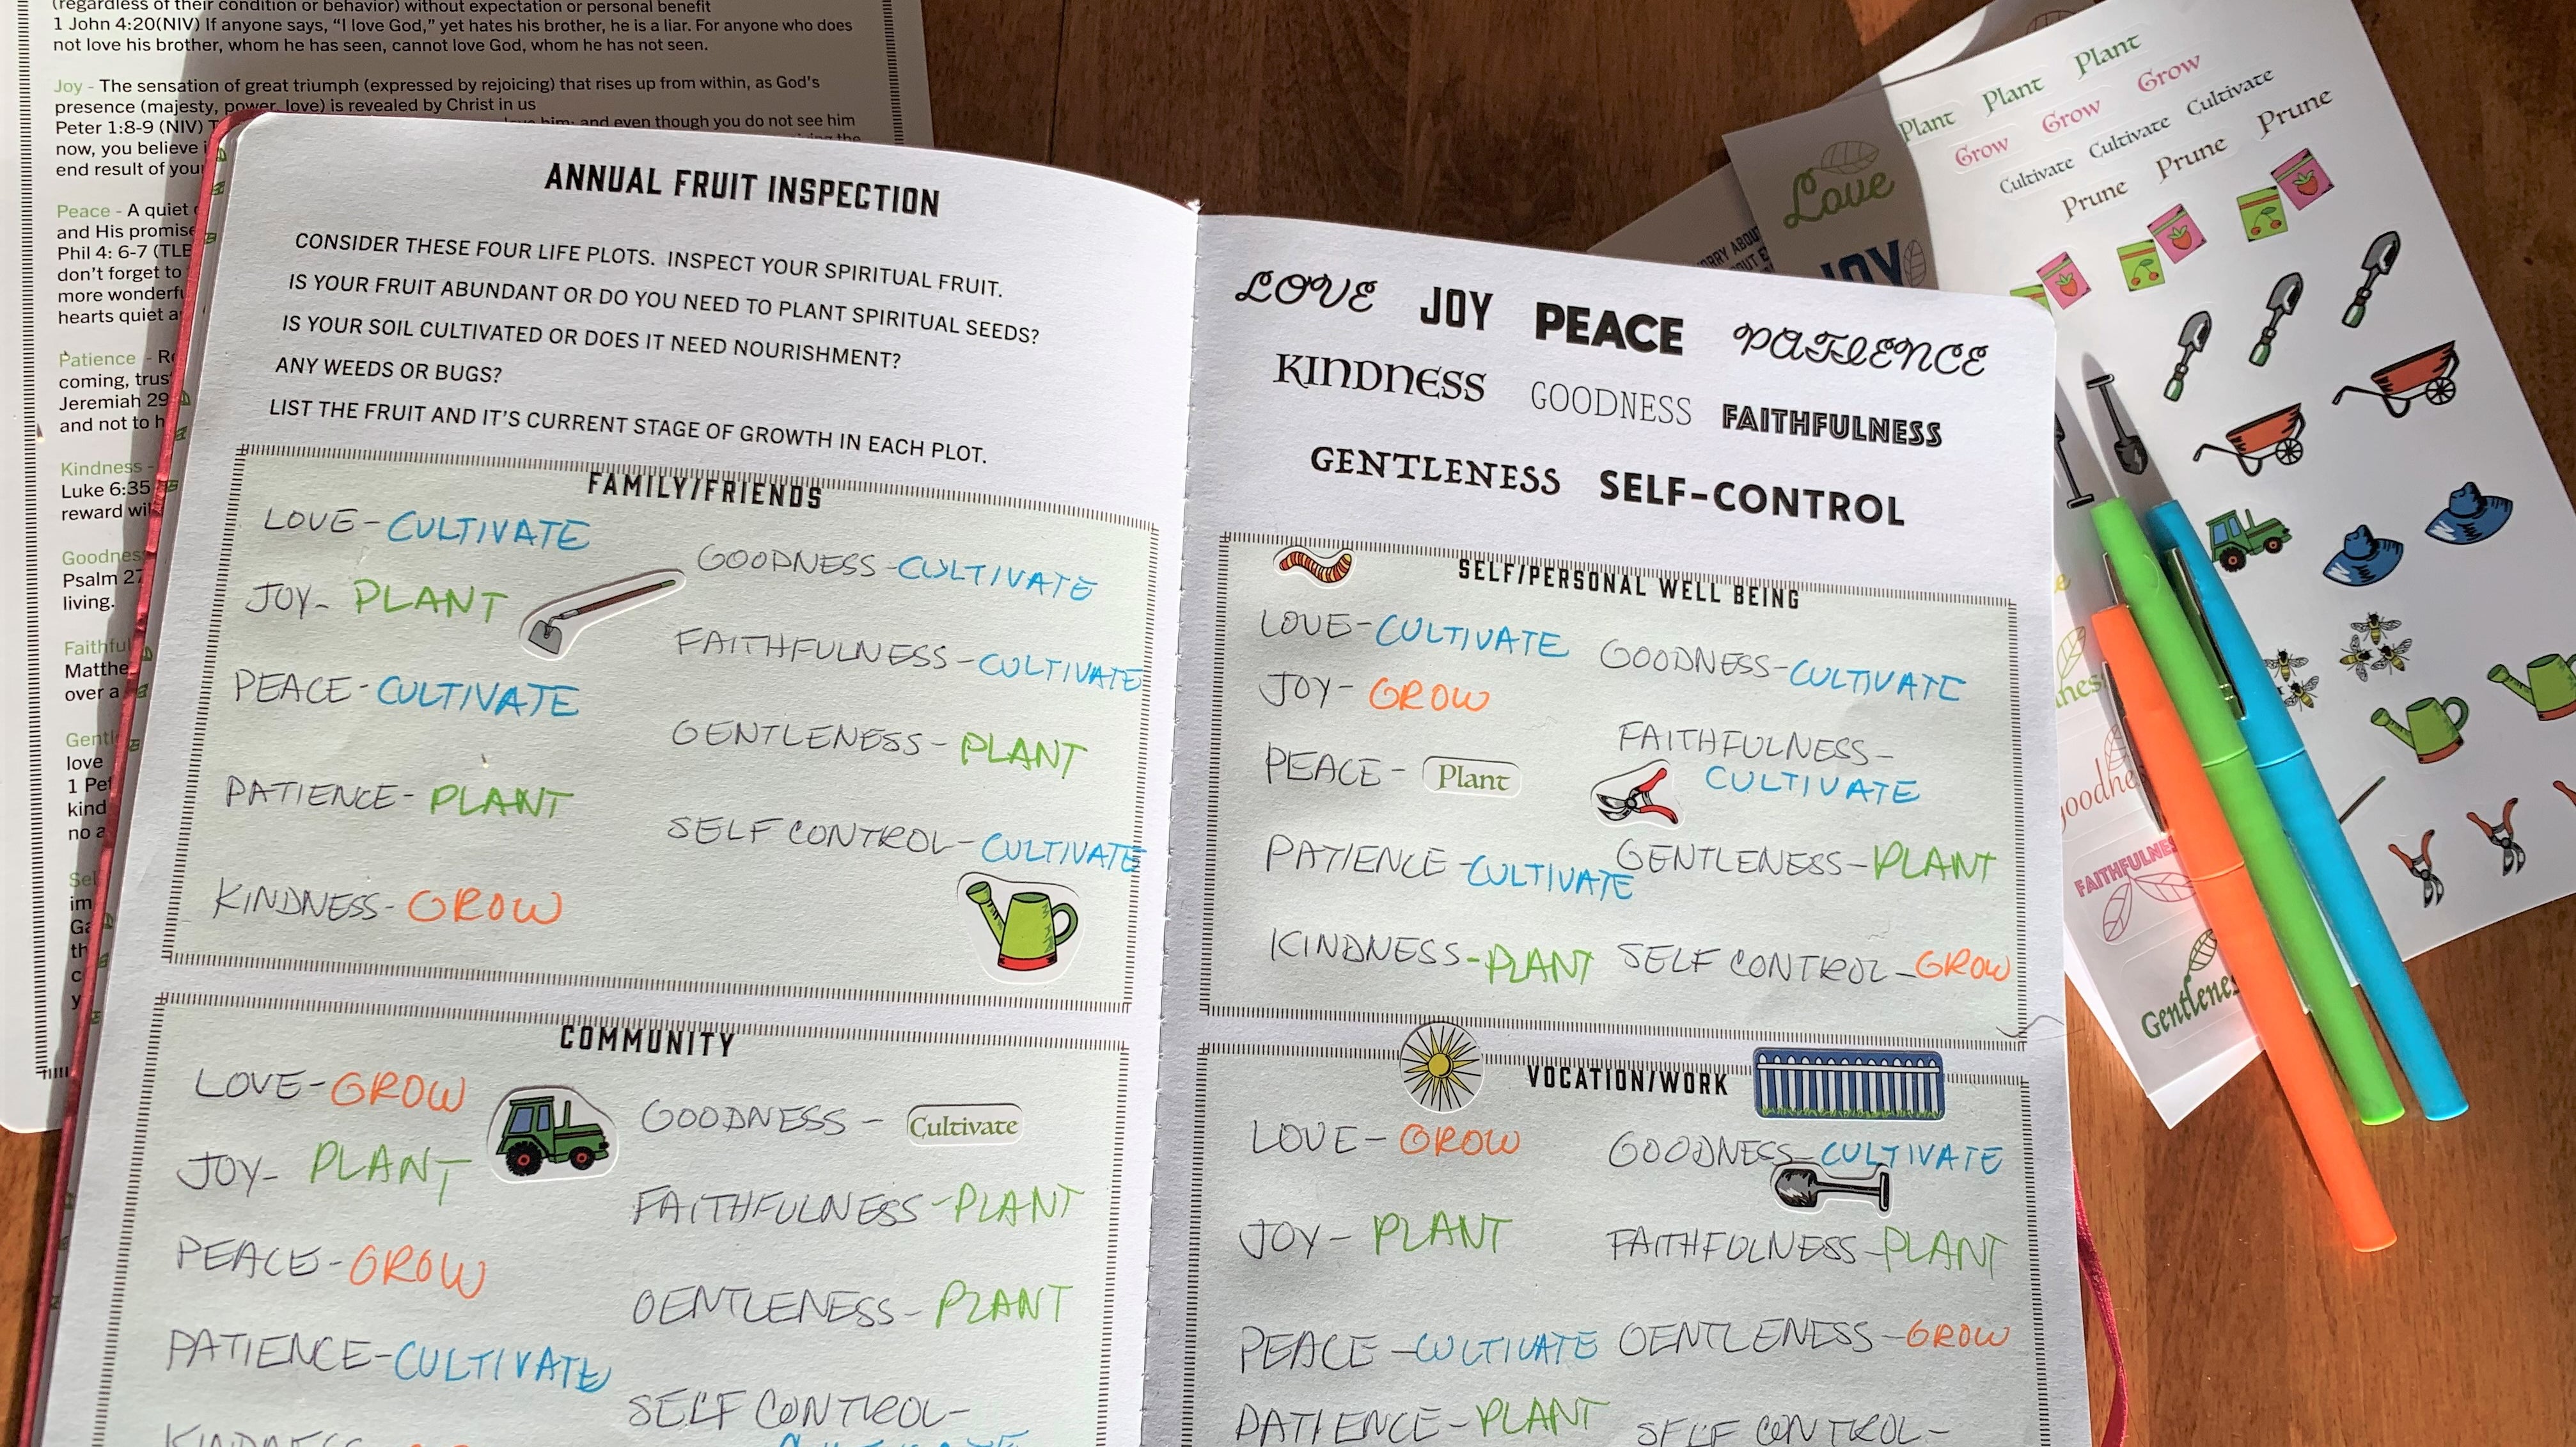 (regardless of their condition or behavior) without expectation or personal benefit
1 John 4:20(NIV) If anyone says, “I love God,” yet hates his brother, he is a liar. For anyone who does
not love his brother, whom he has seen, cannot love God, whom he has not seen.
Joy - The sensation of great triumph (expressed by rejoicing) that rises up from within, as God's
presence (majesty, power, love) is revealed by Christ in us
Peter 1:8-9 (NIV) him; and even though you do not see him
now, you believe the
end result of your
Peace - A quiet
and His promise
Phil 4: 6-7 (TLB
don't forget to
more wonderful
hearts quiet
Patience -
coming, trus
Jeremiah 29
and not to
Kindness -
Luke 6:35
reward wil
Goodness
Psalm 27
living.
Faithful
Matthe
over a
Gentl
love
1 Pet
kind
no a
Sel
im
Ga
th
c
y
ANNUAL FRUIT INSPECTION
CONSIDER THESE FOUR LIFE PLOTS. INSPECT YOUR SPIRITUAL FRUIT.
IS YOUR FRUIT ABUNDANT OR DO YOU NEED TO PLANT SPIRITUAL SEEDS?
IS YOUR SOIL CULTIVATED OR DOES IT NEED NOURISHMENT?
ANY WEEDS OR BUGS?
LIST THE FRUIT AND IT'S CURRENT STAGE OF GROWTH IN EACH PLOT.
FAMILY/FRIENDS
LOVE - CULTIVATE
JOY - PLANT
PEACE - CULTIVATE
PATIENCE - PLANT
KINDNESS - GROW
GOODNESS - CULTIVATE
FAITHFULNESS - CULTIVATE
GENTLENESS - PLANT
SELF CONTROL - CULTIVATE
COMMUNITY
LOVE - GROW
JOY - PLANT
PEACE - GROW
PATIENCE - CULTIVATE
KINDNESS
GOODNESS - Cultivate
FAITHFULNESS - PLANT
GENTLENESS - PLANT
SELF CONTROL -
LOVE JOY PEACE PATIENCE
KINDNESS GOODNESS FAITHFULNESS
GENTLENESS SELF-CONTROL
SELF/PERSONAL WELL BEING
LOVE - CULTIVATE
JOY - GROW
PEACE - Plant
PATIENCE - CULTIVATE
KINDNESS - PLANT
GOODNESS - CULTIVATE
FAITHFULNESS -
CULTIVATE
GENTLENESS - PLANT
SELF CONTROL - GROW
VOCATION/WORK
LOVE - GROW
JOY - PLANT
PEACE - CULTIVATE
PATIENCE - PLANT
GOODNESS - CULTIVATE
FAITHFULNESS - PLANT
GENTLENESS - GROW
SELF CONTROL -
Love
JOY
Plant Plant Plant
Grow Grow Grow
Cultivate Cultivate Cultivate
Prune Prune Prune
FAITHFULNES
Gentlenes